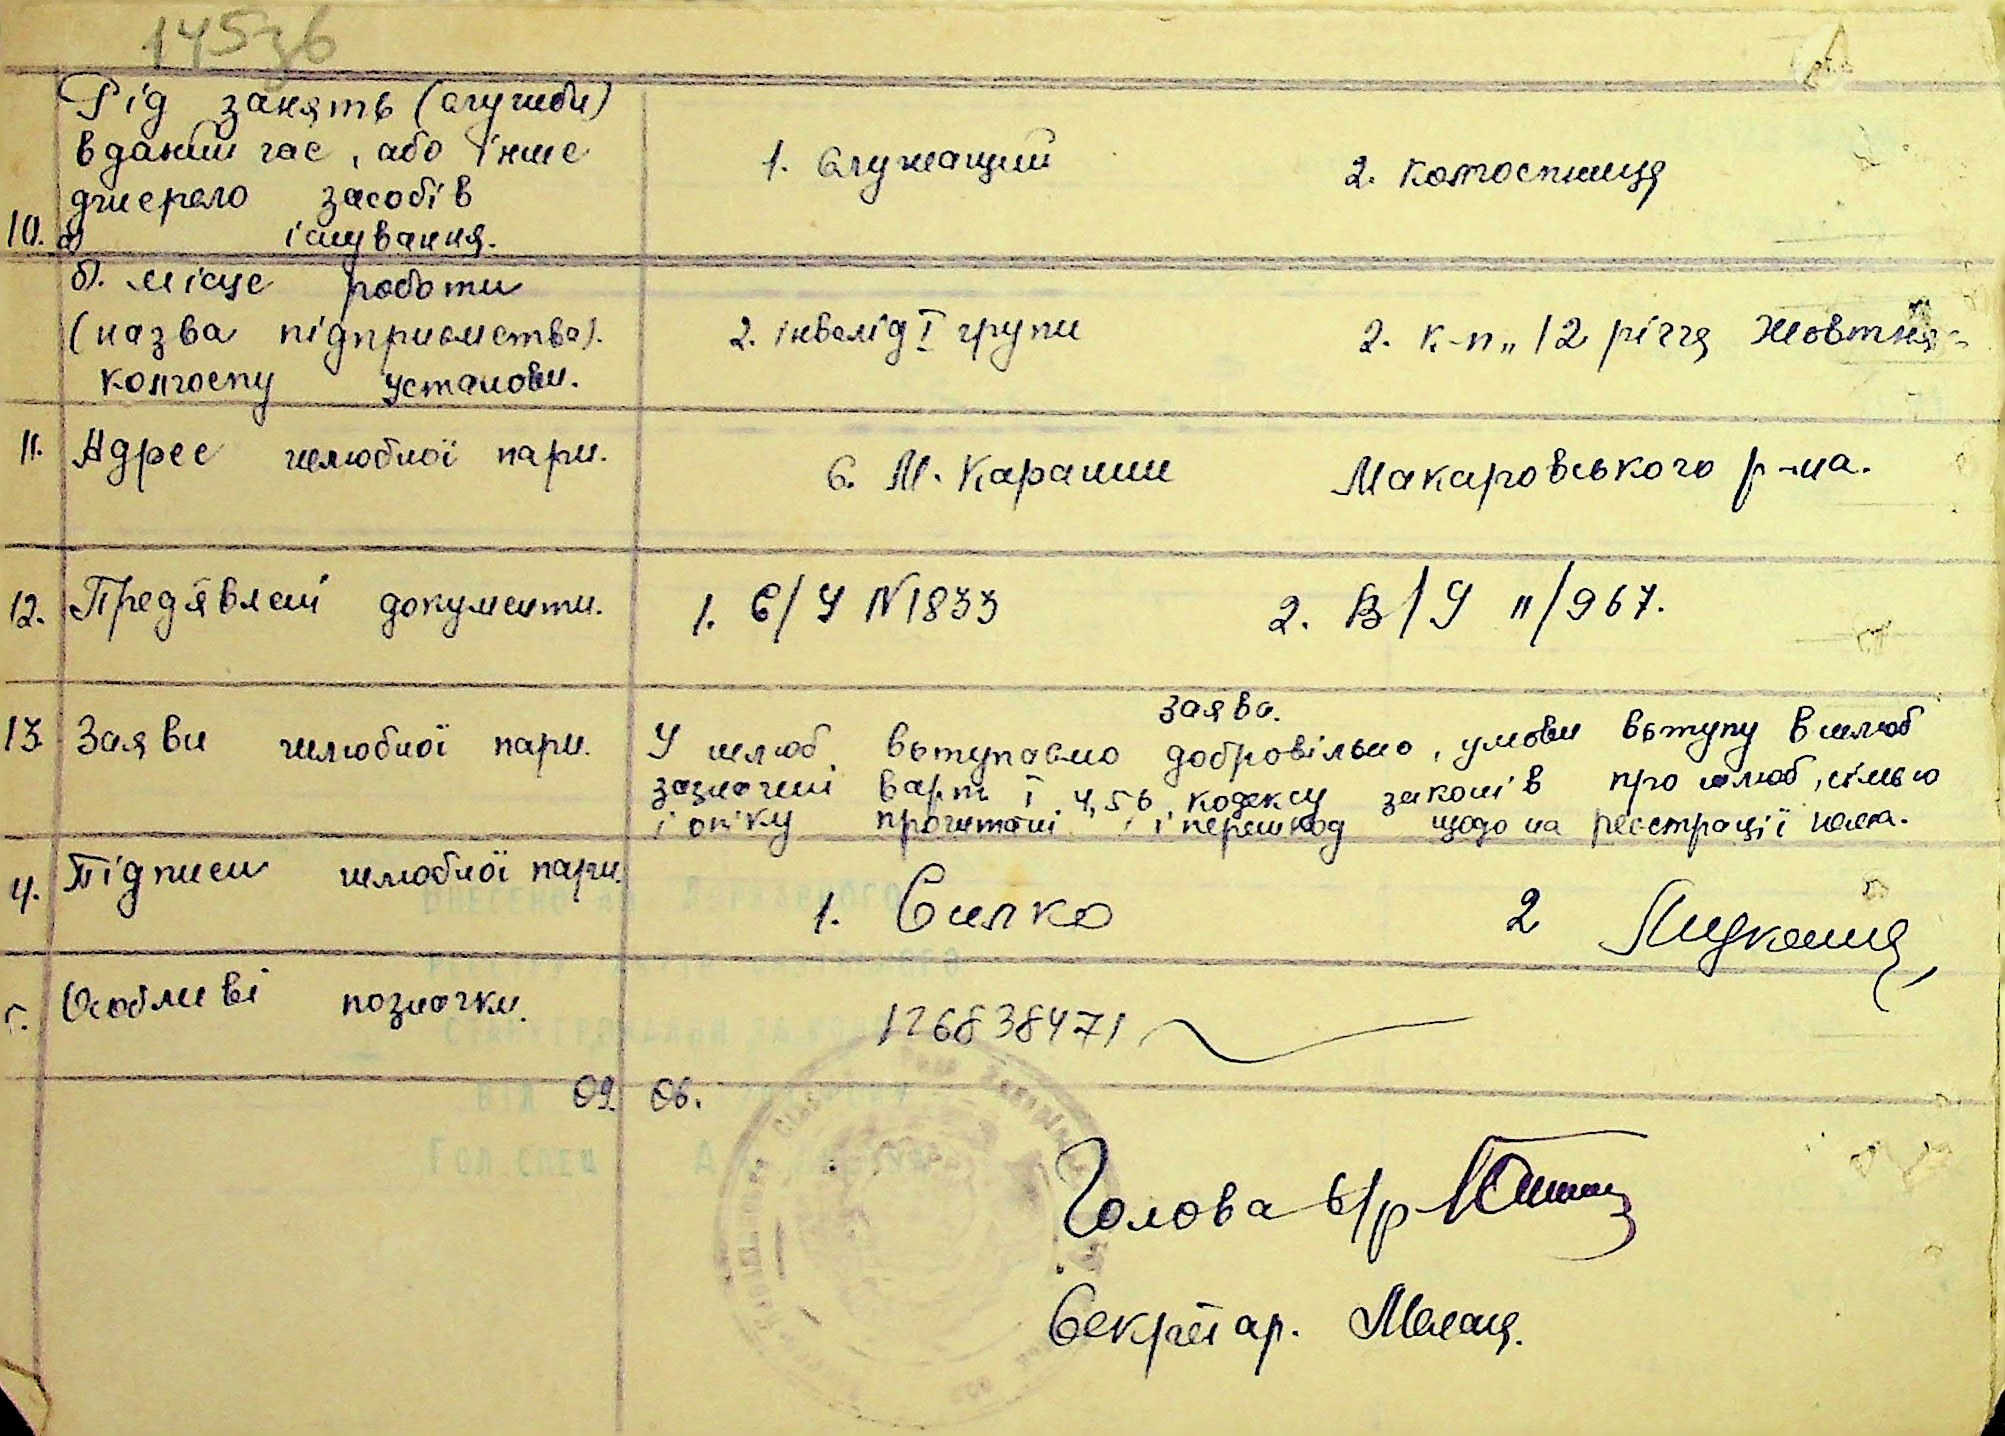 145зв
Рід занять (служби)
в даний час, або інше
джерело засобів
10. а) існування.
1. Служащий 2. колгоспниця
б). місце роботи
(назва підприємства).
колгоспу установи.
2. інвалід I групи 2. к-п „12 річчя Жовтня"
11. Адрес шлюбної пари. С. М. Карашин Макаровського р-на.
12. Предявлені документи. 1. С/У N1833 2. В/У "/967.
Заява.
13. Заяви шлюбної пари. У шлюб вступаємо добровільно, умови вступу в шлюб
зазначені в арт. І, 4, 5, 6, кодексу законів про шлюб, сімью
і опіку прочитані, і перешкод щодо на реєстрації нема.
4. Підписи шлюбної пари. 1. Силко 2
Особливі позначки. 126838471
09. 06.
Голова с/р
Секретар.
Гол. спец